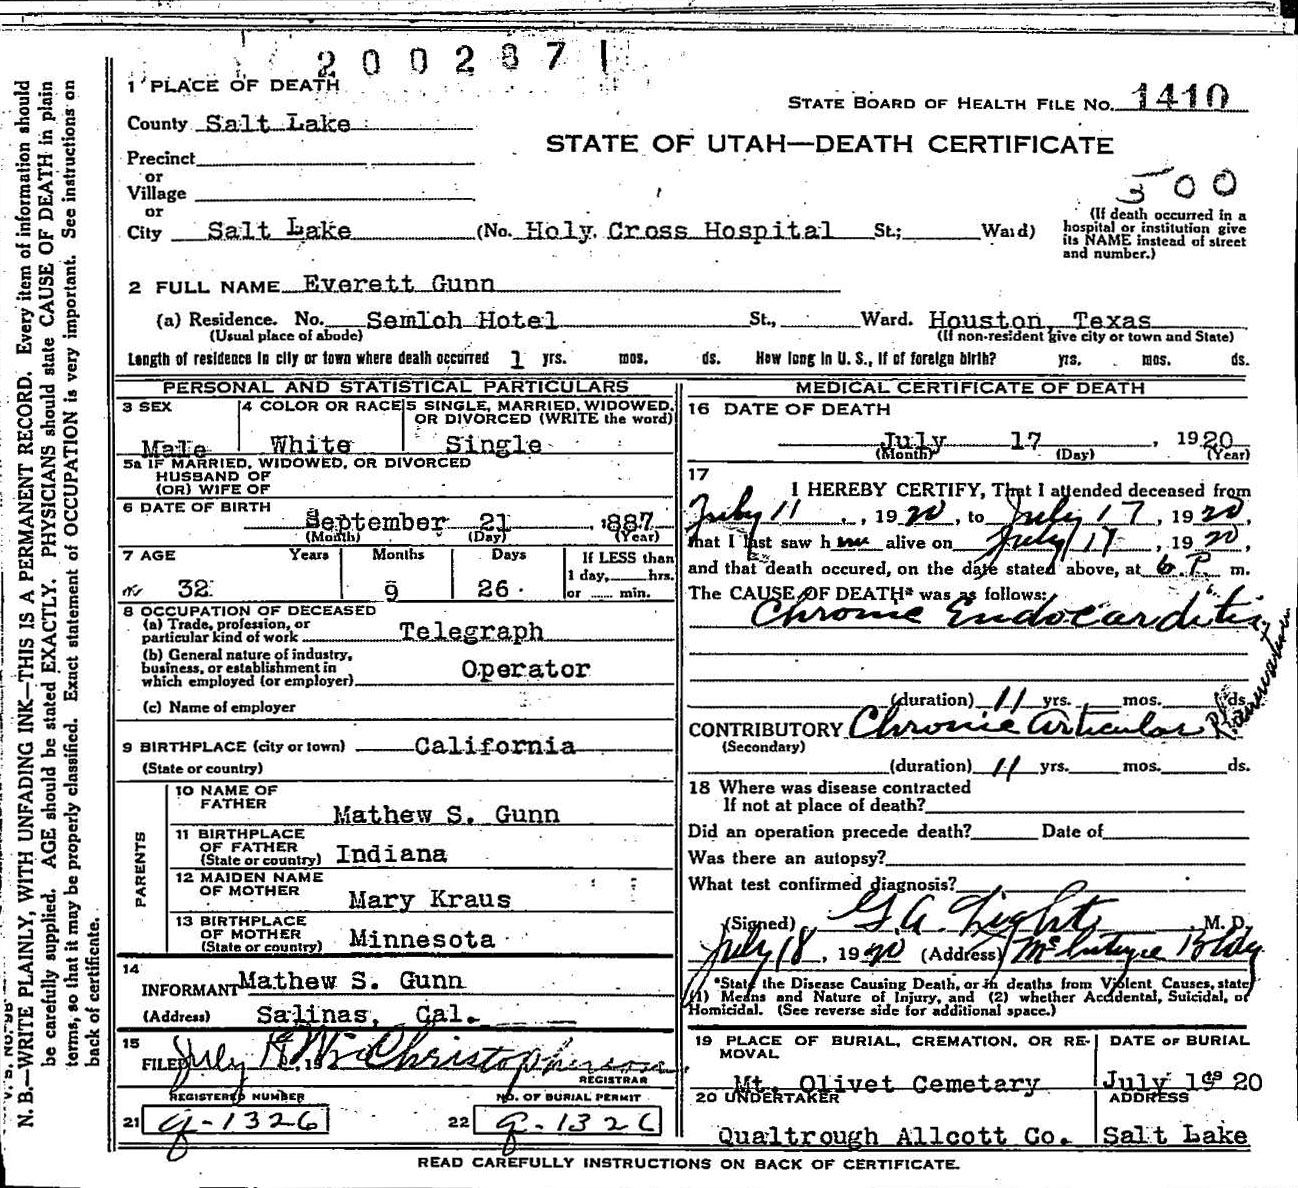 200287
1 PLACE OF DEATH
STATE BOARD OF HEALTH FILE NO. 1410
County Salt Lake
STATE OF UTAH—DEATH CERTIFICATE
Precinct
or
Village
500
or
City Salt Lake (No. Holy Cross Hospital St.; Ward)
(If death occurred in a
hospital or institution give
its NAME instead of street
and number.)
2 FULL NAME Everett Gunn
(a) Residence. No. Semloh Hotel St., Ward. Houston, Texas
(Usual place of abode) (If non-resident give city or town and State)
Length of residence in city or town where death occurred 1 yrs. mos. ds. How long in U. S., if of foreign birth? yrs. mos. ds.
PERSONAL AND STATISTICAL PARTICULARS
3 SEX
Male
4 COLOR OR RACE
White
5 SINGLE, MARRIED, WIDOWED,
OR DIVORCED (WRITE the word)
Single
5a IF MARRIED, WIDOWED, OR DIVORCED
HUSBAND OF
(OR) WIFE OF
6 DATE OF BIRTH
September 21 1887
(Month) (Day) (Year)
7 AGE Years Months Days If LESS than
1 day, hrs.
32 9 26 or min.
8 OCCUPATION OF DECEASED
(a) Trade, profession, or
particular kind of work Telegraph
(b) General nature of industry,
business, or establishment in
which employed (or employer) Operator
(c) Name of employer
9 BIRTHPLACE (city or town) California
(State or country)
PARENTS
10 NAME OF
FATHER
Mathew S. Gunn
11 BIRTHPLACE
OF FATHER
(State or country) Indiana
12 MAIDEN NAME
OF MOTHER
Mary Kraus
13 BIRTHPLACE
OF MOTHER
(State or country) Minnesota
14
INFORMANT Mathew S. Gunn
(Address) Salinas, Cal.
15
FILED July 19 Christopherson
REGISTRAR
REGISTERED NUMBER NO. OF BURIAL PERMIT
21 g-1326 22 g-1326
MEDICAL CERTIFICATE OF DEATH
16 DATE OF DEATH
July 17, 1920
(Month) (Day) (Year)
17
I HEREBY CERTIFY, That I attended deceased from
July 11, 1920, to July 17, 1920,
that I last saw him alive on July 17, 1920,
and that death occured, on the date stated above, at 6 P. m.
The CAUSE OF DEATH* was as follows:
Chronic Endocarditis
(duration) 11 yrs. mos. ds.
CONTRIBUTORY Chronic articular Rheumatism
(Secondary)
(duration) 11 yrs. mos. ds.
18 Where was disease contracted
If not at place of death?
Did an operation precede death? Date of
Was there an autopsy?
What test confirmed diagnosis?
(Signed) G A Light M. D.
July 18, 1920 (Address) McIntyre Bldg
*State the Disease Causing Death, or in deaths from Violent Causes, state
(1) Means and Nature of Injury, and (2) whether Accidental, Suicidal, or
Homicidal. (See reverse side for additional space.)
19 PLACE OF BURIAL, CREMATION, OR RE-
MOVAL
Mt. Olivet Cemetary
DATE OF BURIAL
July 19 20
20 UNDERTAKER
Qualtrough Allcott Co.
ADDRESS
Salt Lake
READ CAREFULLY INSTRUCTIONS ON BACK OF CERTIFICATE.
N. B.—WRITE PLAINLY, WITH UNFADING INK—THIS IS A PERMANENT RECORD. Every item of information should
be carefully supplied. AGE should be stated EXACTLY. PHYSICIANS should state CAUSE OF DEATH in plain
terms, so that it may be properly classified. Exact statement of OCCUPATION is very important. See instructions on
back of certificate.